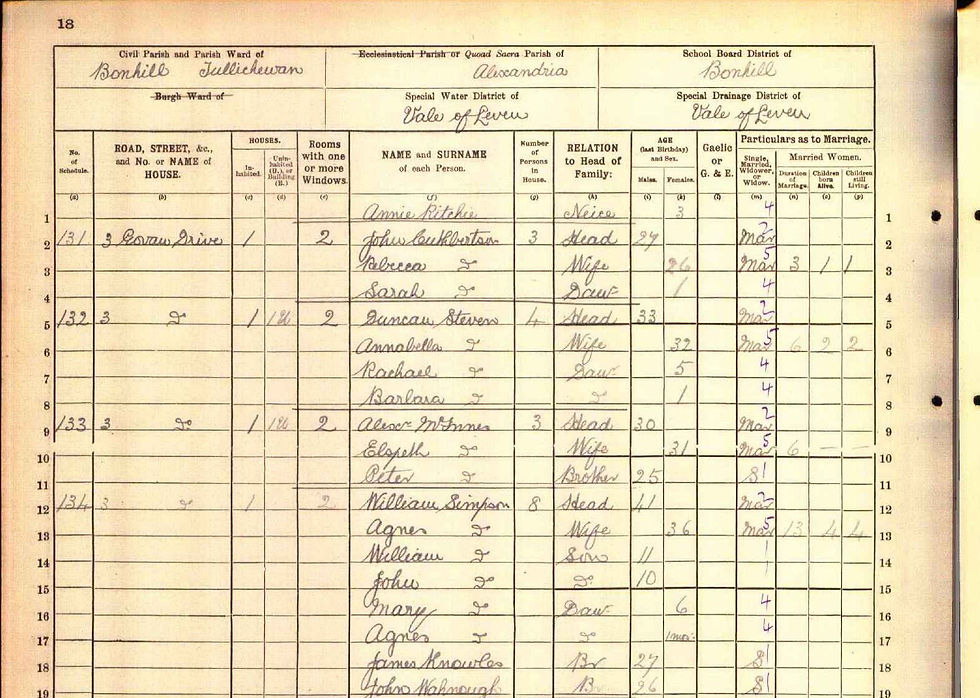 18
Civil Parish and Parish Ward of
Bonhill Tullichewan
Ecclesiastical Parish or Quoad Sacra Parish of
Alexandria
School Board District of
Bonhill
Burgh Ward of
Special Water District of
Vale of Leven
Special Drainage District of
Vale of Leven
No. of Schedule. ROAD, STREET, &c., and No. or NAME of HOUSE. HOUSES. Inhabited. Uninhabited (U.), or Building (B.) Rooms with one or more Windows. NAME and SURNAME of each Person. Number of Persons in House. RELATION to Head of Family: AGE (last Birthday) and Sex. Males. Females. Gaelic or G. & E. Particulars as to Marriage. Single, Married, Widower, or Widow. Married Women. Duration of Marriage. Children born Alive. Children still Living.
(a) (b) (c) (d) (e) (f) (g) (h) (i) (k) (l) (m) (n) (o) (p)
1 Annie Ritchie Neice 3 4 1
2 131 3 Govan Drive 1 2 John Cuthbertson 3 Head 27 Mar 2 2
3 Rebecca Do Wife 26 Mar 5 3 1 1 3
4 Sarah Do Daur 1 4 4
5 132 3 Do 1 2 Duncan Steven 4 Head 33 Mar 2 5
6 Annabella Do Wife 32 Mar 5 6 2 2 6
7 Rachael Do Daur 5 4 7
8 Barbara Do Do 1 4 8
9 133 3 Do 1 2 Alexr McInnes 3 Head 30 Mar 2 9
10 Elspeth Do Wife 31 Mar 5 6 — — 10
11 Peter Do Brother 25 S 1 11
12 134 3 Do 1 2 William Simpson 8 Head 41 Mar 2 12
13 Agnes Do Wife 36 Mar 5 13 4 4 13
14 William Do Son 11 1 14
15 John Do Do 10 15
16 Mary Do Daur 6 4 16
17 Agnes Do Do 1mos 4 17
18 James Knowles Br 27 S 1 18
19 John B 26 S 1 19